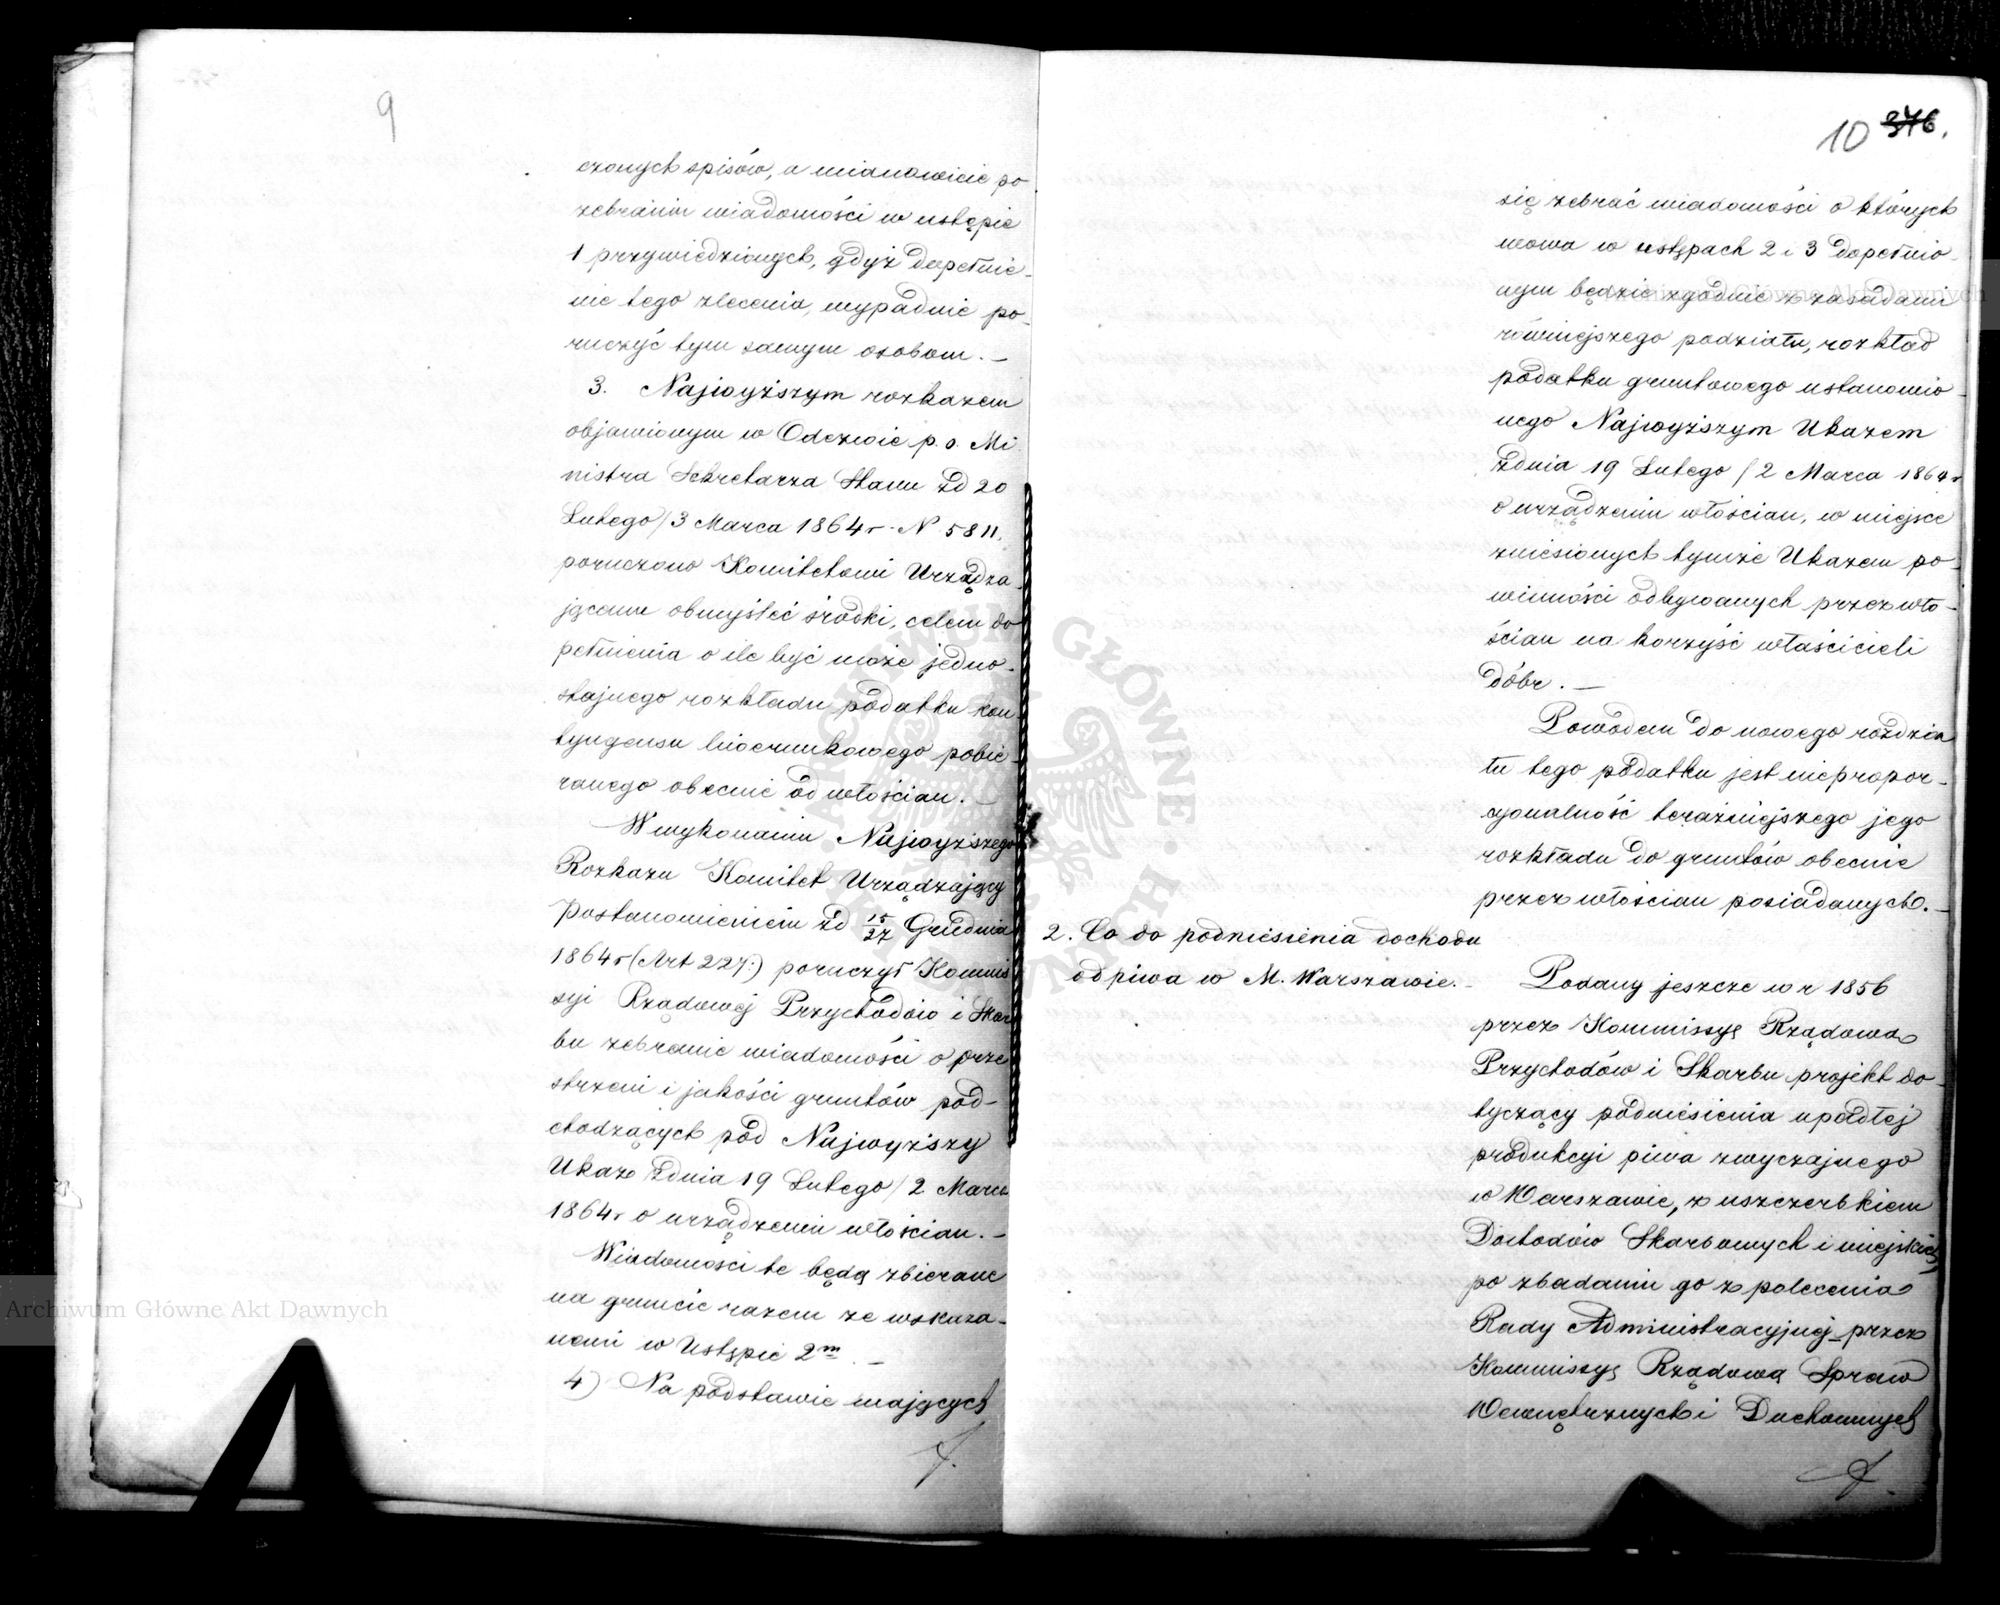 9
czonych spisów, a mianowicie po
zebraniu wiadomości w ustępie
1 przywiedzionych, gdyż dopełnie-
nie tego zlecenia, wypadnie po-
ruczyć tym samym osobom. —
3. Najwyższym rozkazem
objawionym w Odezwie p. o. Mi
nistra Sekretarza Stanu zd 20
Lutego / 3 Marca 1864 r. N 5811.
poruczono Komitetowi Urządza
jącemu obmyśleć środki, celem do
pełnienia o ile być może jedno-
stajnego rozkładu podatku kon
tyngensu liwerunkowego pobie
ranego obecnie od włościan. —
W wykonaniu Najwyższego
Rozkazu Komitet Urządzający
postanowieniem zd 15/27 Grudnia
1864 r (Art 227:) poruczył Kommis
syi Rządowej Przychodów i Skar
bu zebranie wiadomości o prze
strzeni i jakości gruntów pod-
chodzących pod Najwyższy
Ukaz zdnia 19 Lutego / 2 Marca
1864 r o urządzeniu włościan. —
Wiadomości te będą zbierane
na gruncie razem ze wskaza-
nemi w Ustępie 2m. —
4) Na podstawie mających
10 376.
się zebrać wiadomości o których
mowa w ustępach 2 i 3 dopełnio-
nym będzie zgodnie z zasadami
równiejszego podziału, rozkład
podatku gruntowego ustanowio-
nego Najwyższym Ukazem
zdnia 19 Lutego / 2 Marca 1864 r
o urządzeniu włościan, w miejsce
zniesionych tymże Ukazem po-
winności odbywanych przez wło-
ścian na korzyść właścicieli
dóbr. —
Powodem do nowego rozdzia
łu tego podatku jest niepropor-
cyonalność teraźniejszego jego
rozkładu do gruntów obecnie
przez włościan posiadanych. —
2. Co do podniesienia dochodu
od piwa w M. Warszawie. —
Podany jeszcze w r 1856
przez Kommissyę Rządową
Przychodów i Skarbu projekt do-
tyczący podniesienia upadłej
produkcyi piwa zwyczajnego
w Warszawie, z uszczerbkiem
Dochodów Skarbowych i miejskich,
po zbadaniu go z polecenia
Rady Administracyjnej przez
Kommissyę Rządową Spraw
Wewnętrznych i Duchownych
Archiwum Główne Akt Dawnych
Archiwum Główne Akt Dawnych
ARCHIWUM GŁÓWNE AKT DAWNYCH